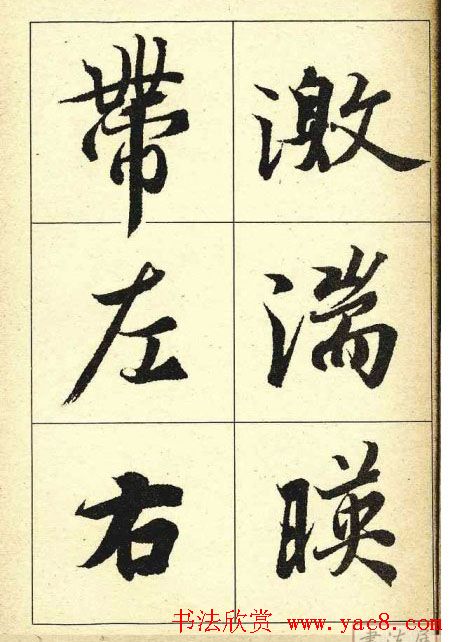 激湍暎
帶左右
书法欣赏 www.yac8.com